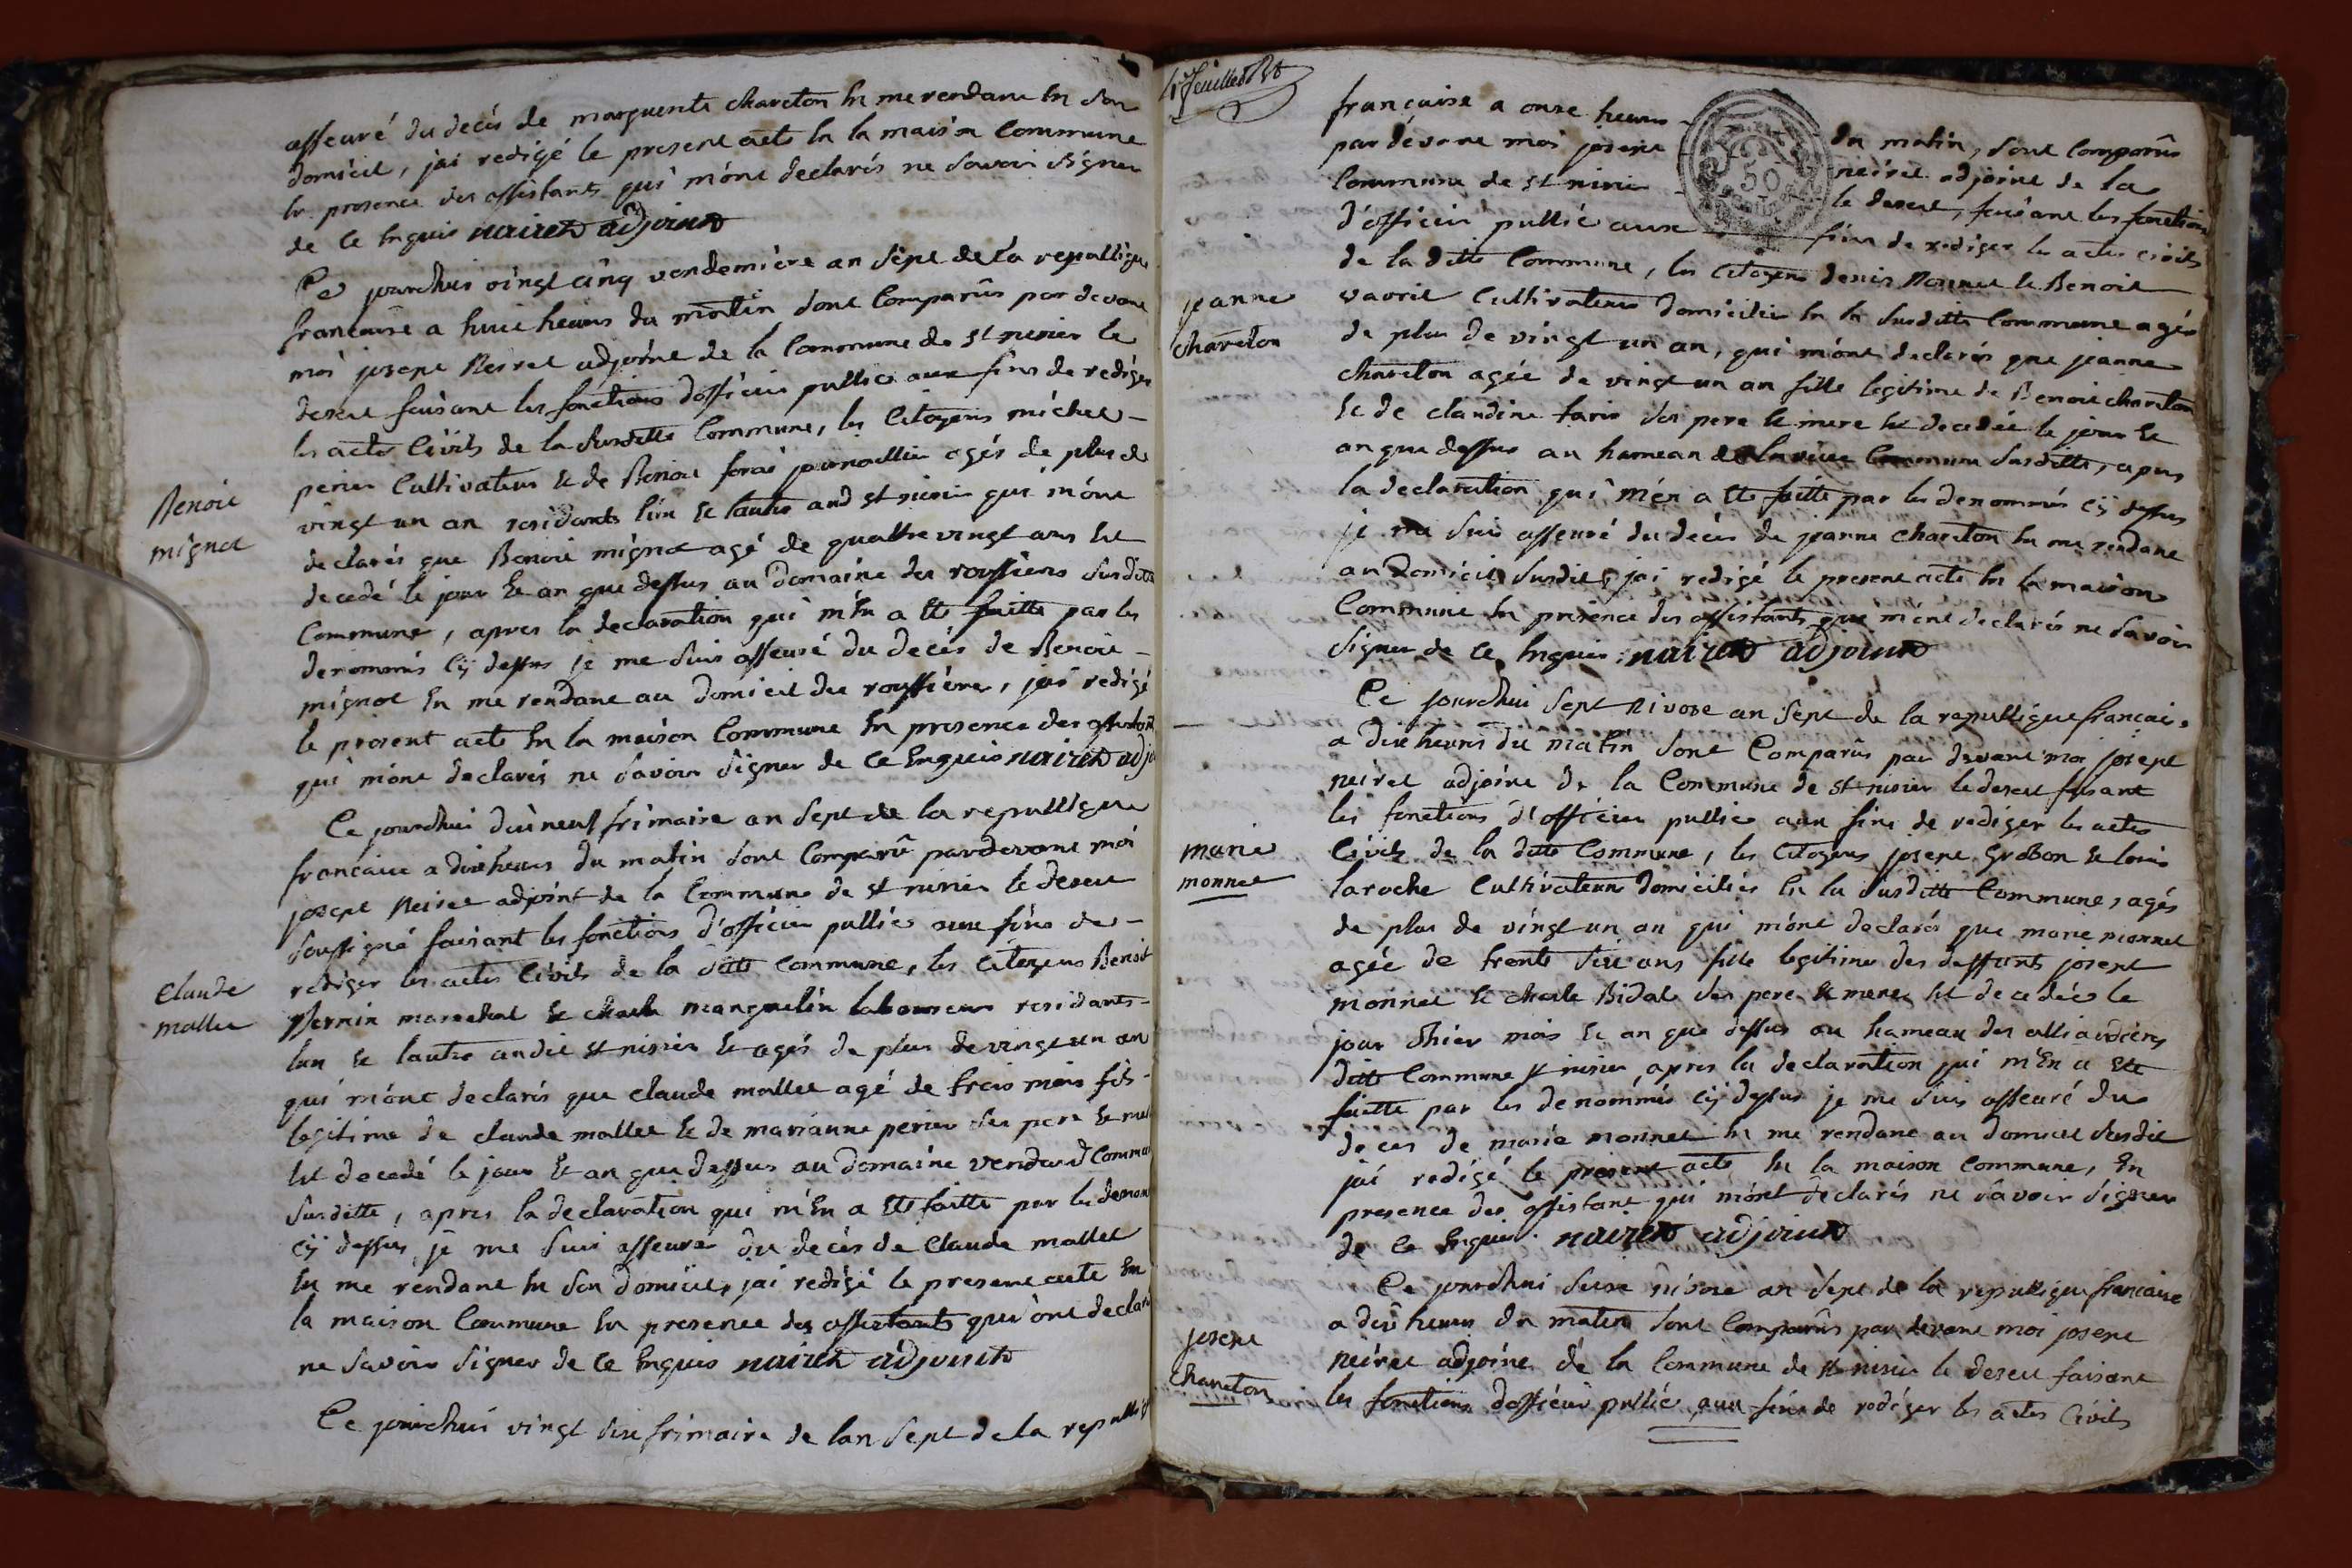 asseuré du decés de marguerite chareton En me rendant En son
domicil, jai redigé le present acte En la maison Commune
En presence des assistants qui mónt declarés ne Savoir Signer
de Ce Enquis neiret adjoint
Ce jourdhui vingt cinq vendemiere an Sept de la republique
francaise a huit heures du matin Sont Comparûs par devant
moi josept Neiret adjoint de la Commune de St nisier le
desert faisant les fonctions dofficier public aux fins de rediger
les actes Civils de la Susditte Commune, les Citoyens michel
perier Cultivateur Et de Benoit forai journallier agés de plus de
vingt un an residants lun Et lautre aud St nisier qui mónt
declarés que Benoit mignot agé de quattre vingt ans Est
decedé le jour Et an que dessus au Domaine des roussieres Susditte
Commune, apres la declaration qui m'En a Eté faitte par les
denommés Cy dessus je me Suis asseuré du decés de Benoit
mignot En me rendant au domicil des roussieres, jai redigé
le present acte En la maison Commune En presence des assistants
qui mónt declarés ne Savoir Signer de Ce Enquis neiret adjo
Benoit
mignot
Ce jourdhui dixneuf frimaire an Sept de la republique
francaise a dix heures du matin Sont Comparû pardevant moi
josept Neiret adjoint de la Commune de St nisier le desert
Soussigné faisant les fonctions d'officier public aux fins de
rediger les actes Civils de la ditte Commune, les Citoyens Benoit
Pernin marechal Et charle manguelin laboureur residants
lun Et lautre audit St nisier Et agés de plus de vingt un an
qui mónt declarés que Claude mallet agé de trois mois fils
legitime de claude mallet Et de marianne perier Ses pere Et mere
Est decedé le jour Et an que dessus au Domaine vendard Commune
Susditte, apres la declaration qui m'En a Eté faitte par les denom
Cy dessus je me Suis asseuré du decés de Claude mallet
En me rendant En Son domicil, jai redigé le present acte En
la maison Commune En presence des assistants qui ónt declaré
ne Savoir Signer de Ce Enquis neiret adjoint
Claude
mallet
Ce jourdhui vingt Six frimaire de lan Sept de la republiq
francaise a onze heures du matin, Sont Comparûs
par devant moi josept neiret adjoint de la
Commune de St nisier le desert, faisant les fonctions
d'officier public aux fins de rediger les actes civils
de la ditte Commune, les Citoyens denis Monnet Et Benoit
vavril Cultivateurs domiciliés En la Susditte Commune agés
de plus de vingt un an, qui mónt declarés que jeanne
chareton agée de vingt un an fille legitime de Benoit chareton
Et de claudine tarin Ses pere Et mere Est decedée le jour Et
an que dessus au hameau de Commune Susditte, apres
la declaration qui m'en a Eté faitte par les denommés Cy dessus
je me Suis asseuré du decés de jeanne chareton En me rendant
au Domicil Susdit, jai redigé le present acte En la maison
Commune En presence des assistants qui mónt declarés ne Savoir
Signer de Ce Enquis neiret adjoint
jeanne
chareton
Ce jourdhui Sept nivose an Sept de la republique francaise
a dix heures du matin Sont Comparûs par devant moi josept
neiret adjoint de la Commune de St nisier le desert faisant
les fonctions d'officier public aux fins de rediger les actes
Civils de la ditte Commune, les Citoyens josept Grobon Et louis
laroche Cultivateurs domiciliés En la Susditte Commune, agés
de plus de vingt un an qui mónt declarés que marie monnet
agée de trente Six ans fille legitime des deffunts josept
monnet Et charle Bidal Ses pere Et mere Est decedée le
jour dhier mois Et an que dessus au hameau des alliaudieres
ditte Commune St nisier, apres la declaration qui m'En a Eté
faitte par les denommés Cy dessus je me Suis asseuré du
deces de marie monnet En me rendant au domicil Susdit
jai redigé le present acte En la maison Commune, En
presence des assistant qui mónt declarés ne Savoir Signer
de Ce Enquis. neiret adjoint
marie
monnet
Ce jourdhui Seize nivose an Sept de la republique francaise
a dix heures du matin Sont Comparûs par devant moi josept
neiret adjoint de la Commune de St nisier le desert faisant
les fonctions dofficier public aux fins de rediger les actes Civils
josept
Chareton